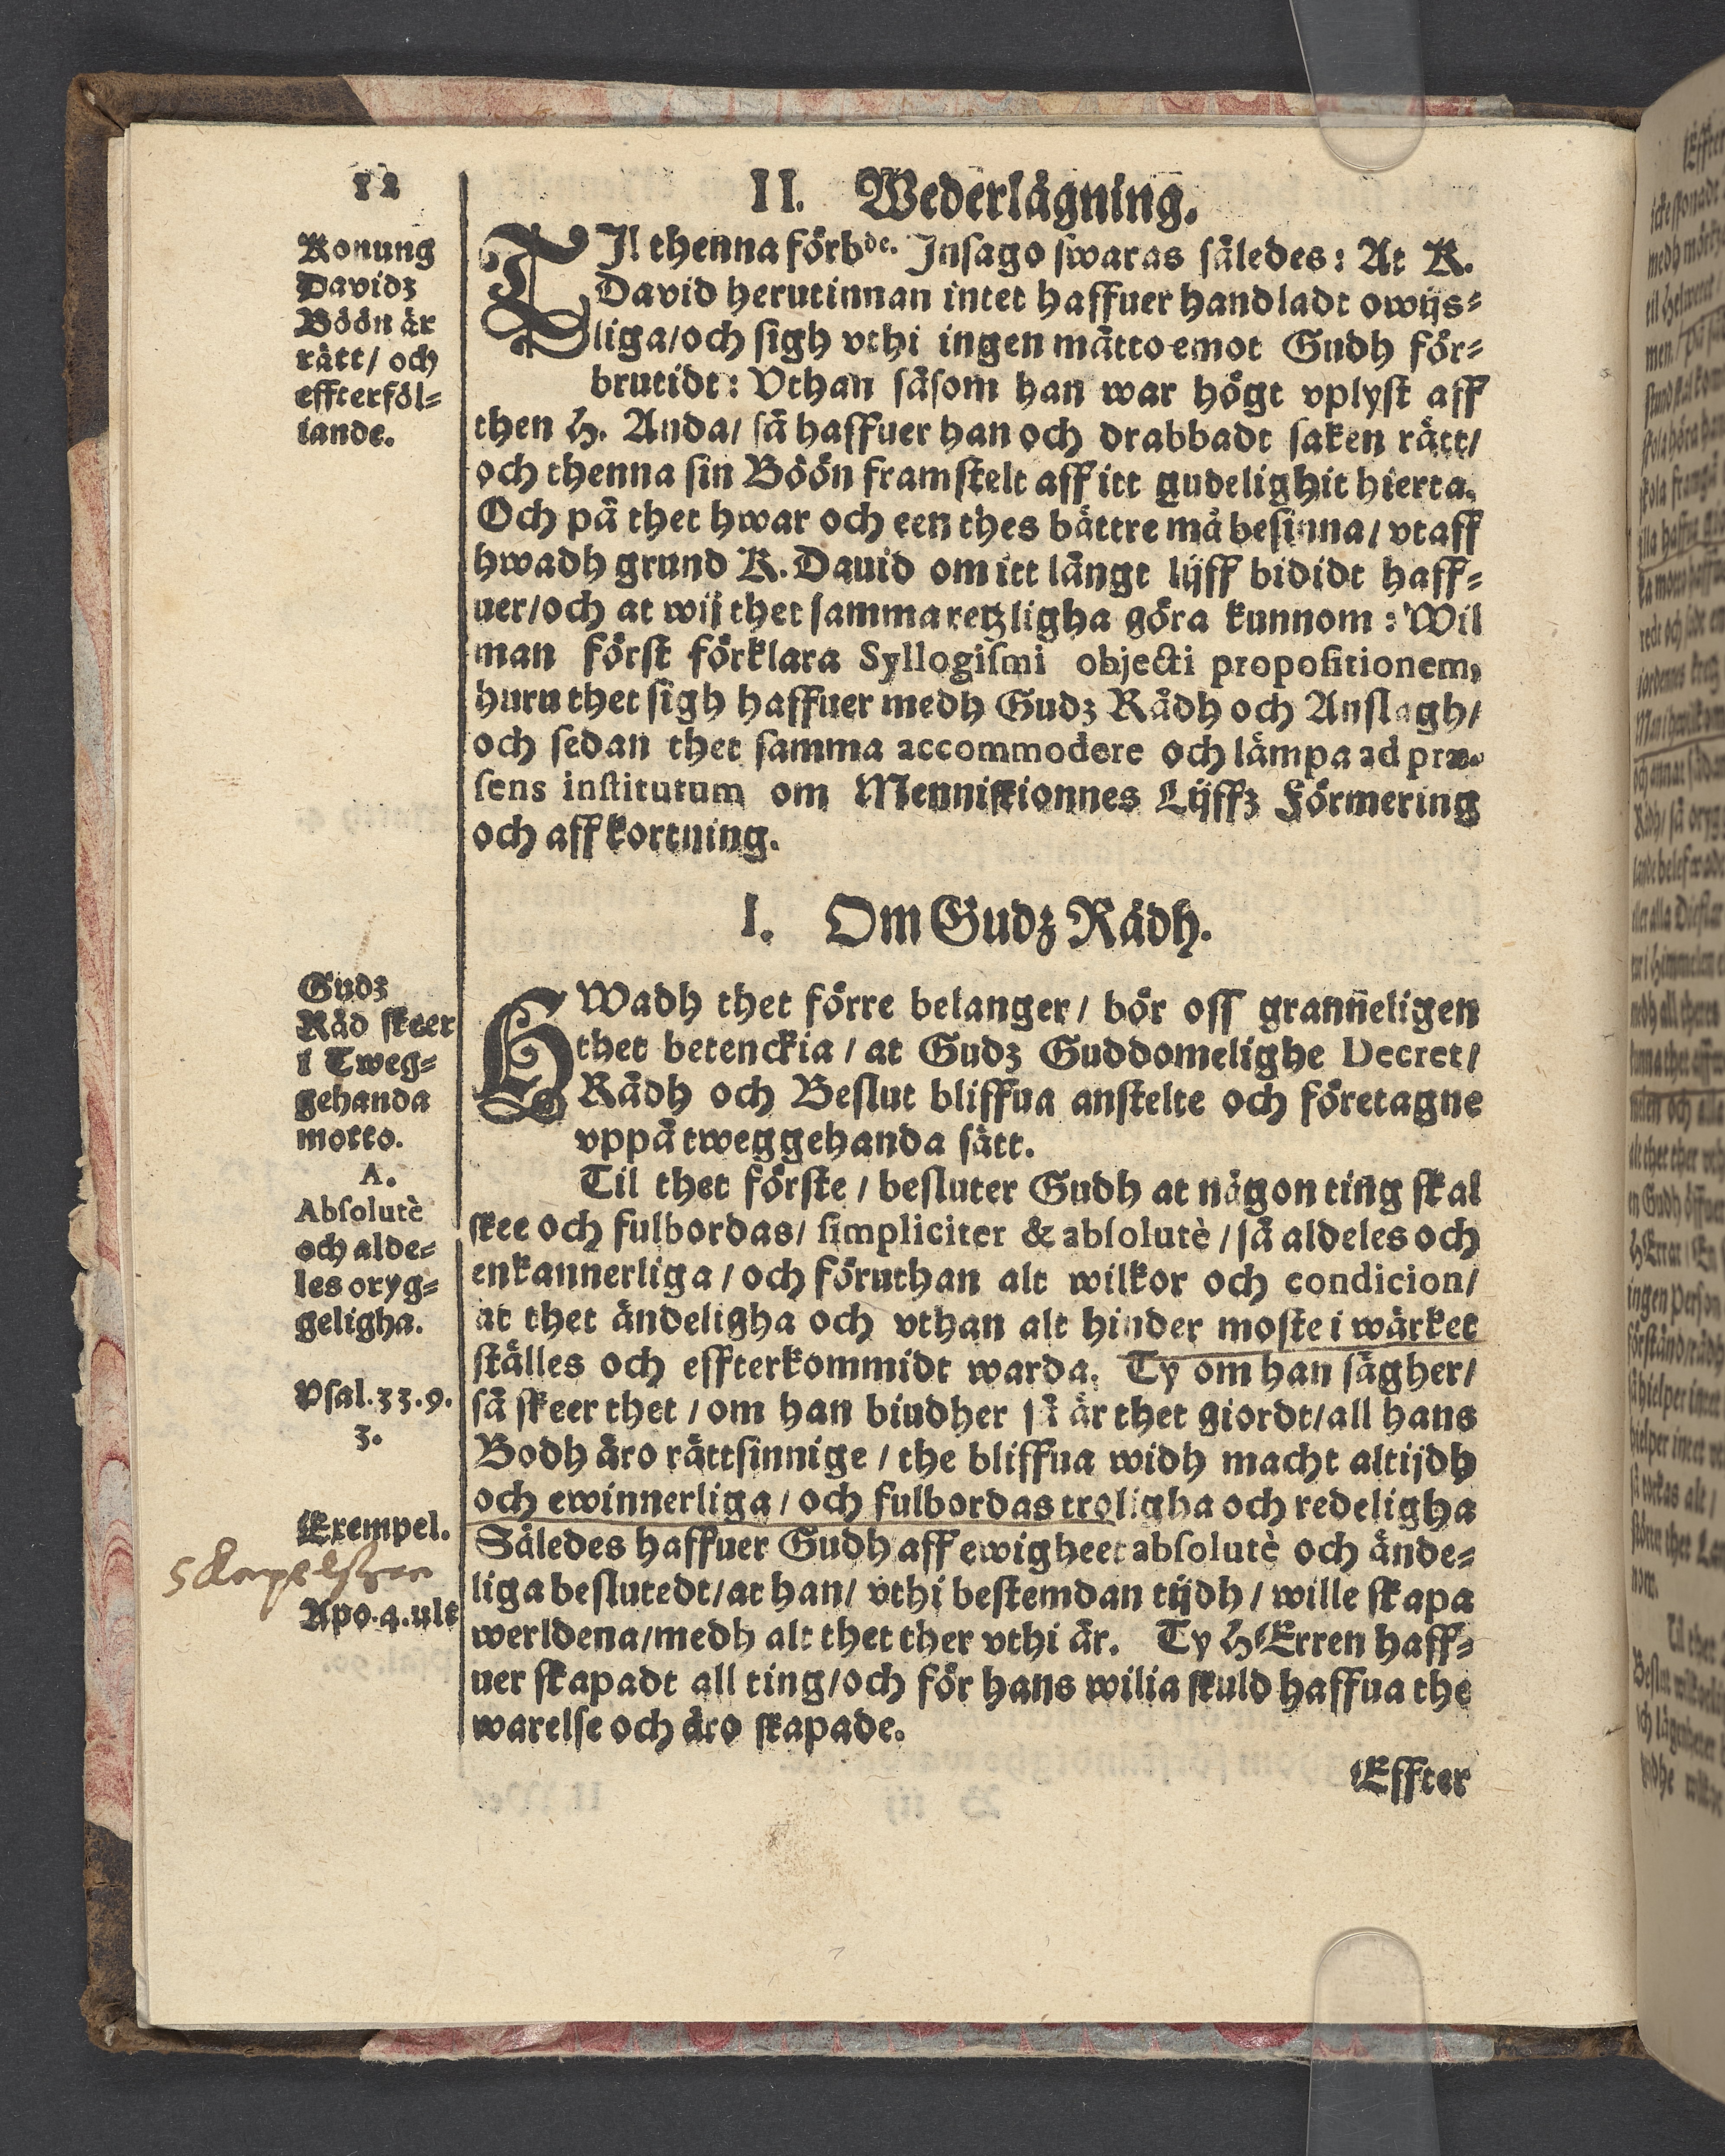 12
II. Wederlägning.
Konung
Davidz
Böön är
rätt/ och
effterföl-
lande.
TIl thenna förbde. Insago swaras således: At K.
David herutinnan intet haffuer handladt owijs-
liga/och sigh vthi ingen mätto emot Gudh för-
brutidt: Vthan såsom han war högt vplyst aff
then H. Anda/ så haffuer han och drabbadt saken rätt/
och thenna sin Böön framstelt aff itt gudelighit hierta.
Och på thet hwar och een thes bättre må besinna/ vtaff
hwadh grund K. Dauid om itt långt lijff bididt haff-
uer/och at wij thet samma retzligha göra kunnom: Wil
man först förklara Syllogismi objecti propositionem,
huru thet sigh haffuer medh Gudz Rådh och Anslagh/
och sedan thet samma accommodere och lämpa ad præ-
sens institutum om Menniskionnes Lijffz Förmering
och affkortning.
I. Om Gudz Rådh.
Gudz
Råd skeer
i Tweg-
gehanda
motto.
A.
Absolutè
och alde-
les oryg-
geligha.
HWadh thet förre belanger/ bör oss grañeligen
thet betenckia/ at Gudz Guddomelighe Decret/
Rådh och Beslut bliffua anstelte och företagne
vppå tweggehanda sätt.
Til thet förste/ besluter Gudh at någon ting skal
skee och fulbordas/ simpliciter & absolutè/ så aldeles och
enkannerliga/ och föruthan alt wilkor och condicion/
at thet ändeligha och vthan alt hinder moste i wärket
ställes och effterkommidt warda. Ty om han sägher/
så skeer thet/ om han biudher så är thet giordt/all hans
Bodh äro rättsinnige/ the bliffua widh macht altijdh
och ewinnerliga/ och fulbordas troligha och redeligha
Psal. 33. 9.
3.
Exempel.
Således haffuer Gudh aff ewigheet absolutè och ände-
liga beslutedt/at han/ vthi bestemdan tijdh/ wille skapa
werldena/medh alt thet ther vthi är. Ty HErren haff-
uer skapadt all ting/och för hans wilia skuld haffua the
warelse och äro skapade.
Apo. 4. ult
Effter